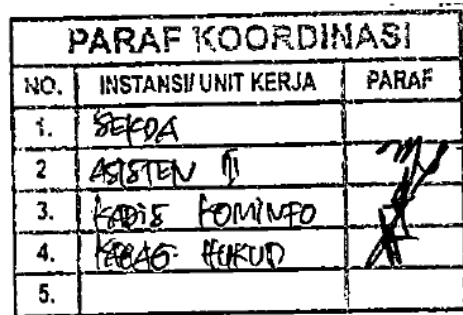 PARAF KOORDINASI
NO. INSTANSI/UNIT KERJA PARAF
1. SEKDA
2 ASISTEN III
3. KADIS KOMINFO
4. KABAG HUKUM
5.